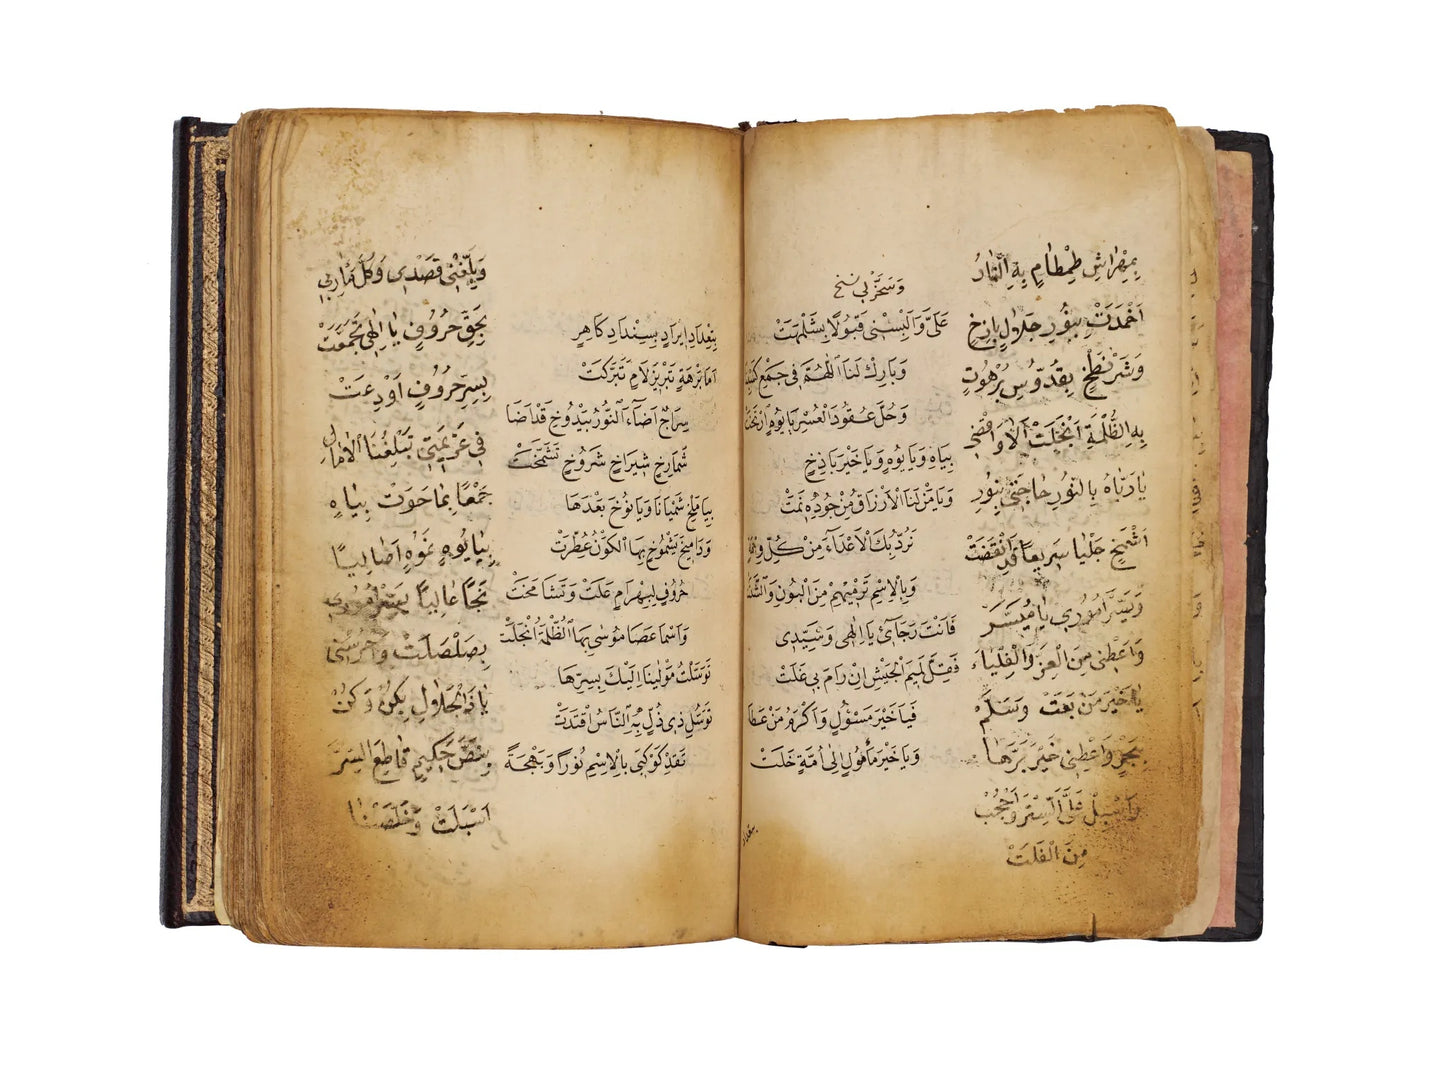 بِمِهْرَاشِ طِمْطَامٍ بِهِ النَّارُ
اُخْمَدَتْ بِنُورِ جَلَالٍ بَازِخٍ
وَشَرَنْطَخٍ بِقُدُّوسِ بَرْهُوتٍ
بِهِ الظُّلْمَةِ انْجَلَتْ اَلَا وَاقْضِ
يَا رَبَّاهُ بِالنُّورِ حَاجَتِي بِنُورِ
اَشْمَخٍ جَلْيَا سَرِيعًا قَدِ انْقَضَتْ
وَيَسِّرْ اُمُورِي يَا مُيَسِّرُ
وَاَعْطِنِي مِنَ الْعِزِّ وَالْقِلْيَاءِ
يَا خَيْرَ مَنْ بَعَتْ وَسَلِّمْ
بِبَحْرٍ وَاَعْطِنِي خَيْرَ بَرِّهَا
وَاَسْبِلْ عَلَيَّ السِّتْرَ وَاحْجُبْ
مِنَ الْفَلَتْ
وَسَخِّرْ لِي نسخ
عَلَيَّ وَاَلْبِسْنِي قَبُولًا بِشَلْمَهَتْ
وَبَارِكْ لَنَا اَللّٰهُمَّ فِي جَمْعِ
وَحُلَّ عُقُودَ الْعُسْرِ يَايُوهٍ
بِيَاهٍ وَيَايُوهٍ وَيَا خَيْرَ بَاذِخٍ
وَيَا مَنْ لَنَا الْاَرْزَاقُ مِنْ جُودِهِ نَمَتْ
نَرُدُّ بِكَ الْاَعْدَاءَ مِنْ كُلِّ
وَبِالْاِسْمِ نَرْمِيهِمْ مِنَ الْبَوْنِ
فَاَنْتَ رَجَائِي يَا اِلٰهِي وَسَيِّدِي
فَقُلْ لَمِيمَ الْجَيْشِ اِنْ رَامَ بِي غَلَتْ
فَيَا خَيْرَ مَسْؤُلٍ وَاَكْرَمَ مَنْ عَطَا
وَيَا خَيْرَ مَأْمُولٍ اِلَى اُمَّةٍ خَلَتْ
بِتَعْدَادِ اِبْرَادٍ بِسِنْدَادِ كَاهِرٍ
تَبْرِيزِ لَامٍ تَبَرَّكَتْ
سِرَاجٌ اَضَآءَ النُّورُ بَيْدُوخٍ قَدْ اَضَا
شَمَارِخٍ شَيرَاخٍ شَرُوخٍ تَشَمَّخَتْ
شَمْيَانَا وَيَا نُوخَ بَعْدَهَا
وَدَامِيخَ يَشْمُوخٍ بِهَا الْكَوْنُ عُطِّرَتْ
حُرُوفٍ لِبَهْرَامٍ عَلَتْ وَتَشَامَخَتْ
وَاَسْمَا عَصَا مُوسَى بِهَا الظُّلْمَةُ انْجَلَتْ
تَوَسَّلْتُ مَوْلَينَا اِلَيْكَ بِسِرِّهَا
تَوَسُّلَ ذِي ذُلٍّ بِهِ النَّاسُ اهْتَدَتْ
تَقِدْ كَوْكَبِي بِالْاِسْمِ نُورًا وَبَهْجَةً
وَبَلِّغْنِي قَصْدِي وَكُلَّ مَاٰرِبِي
بِحَقِّ حُرُوفٍ يَا اِلٰهِي تَجَمَّعَتْ
بِسِرِّ حُرُوفٍ اُودِعَتْ
فِي عَزِيمَتِي تُبَلِّغُنَا الْاٰمَالَ
جَمْعًا بِمَا حَوَتْ بِيَاهٍ
بِيَايُوهٍ نَمُوهٍ اَصَالِيًا
نَجَا عَالِيًا يَسِّرْ اُمُورِي
بِصَلْصَلَتْ وَاحْرُسْنِي
يَا ذَا الْجَلَالِ بِكُنْ وَكُنْ
بِنَصِّ حَكِيمٍ قَاطِعِ السِّرِّ
اُسْبِلَتْ وَخَلِّصْنَا